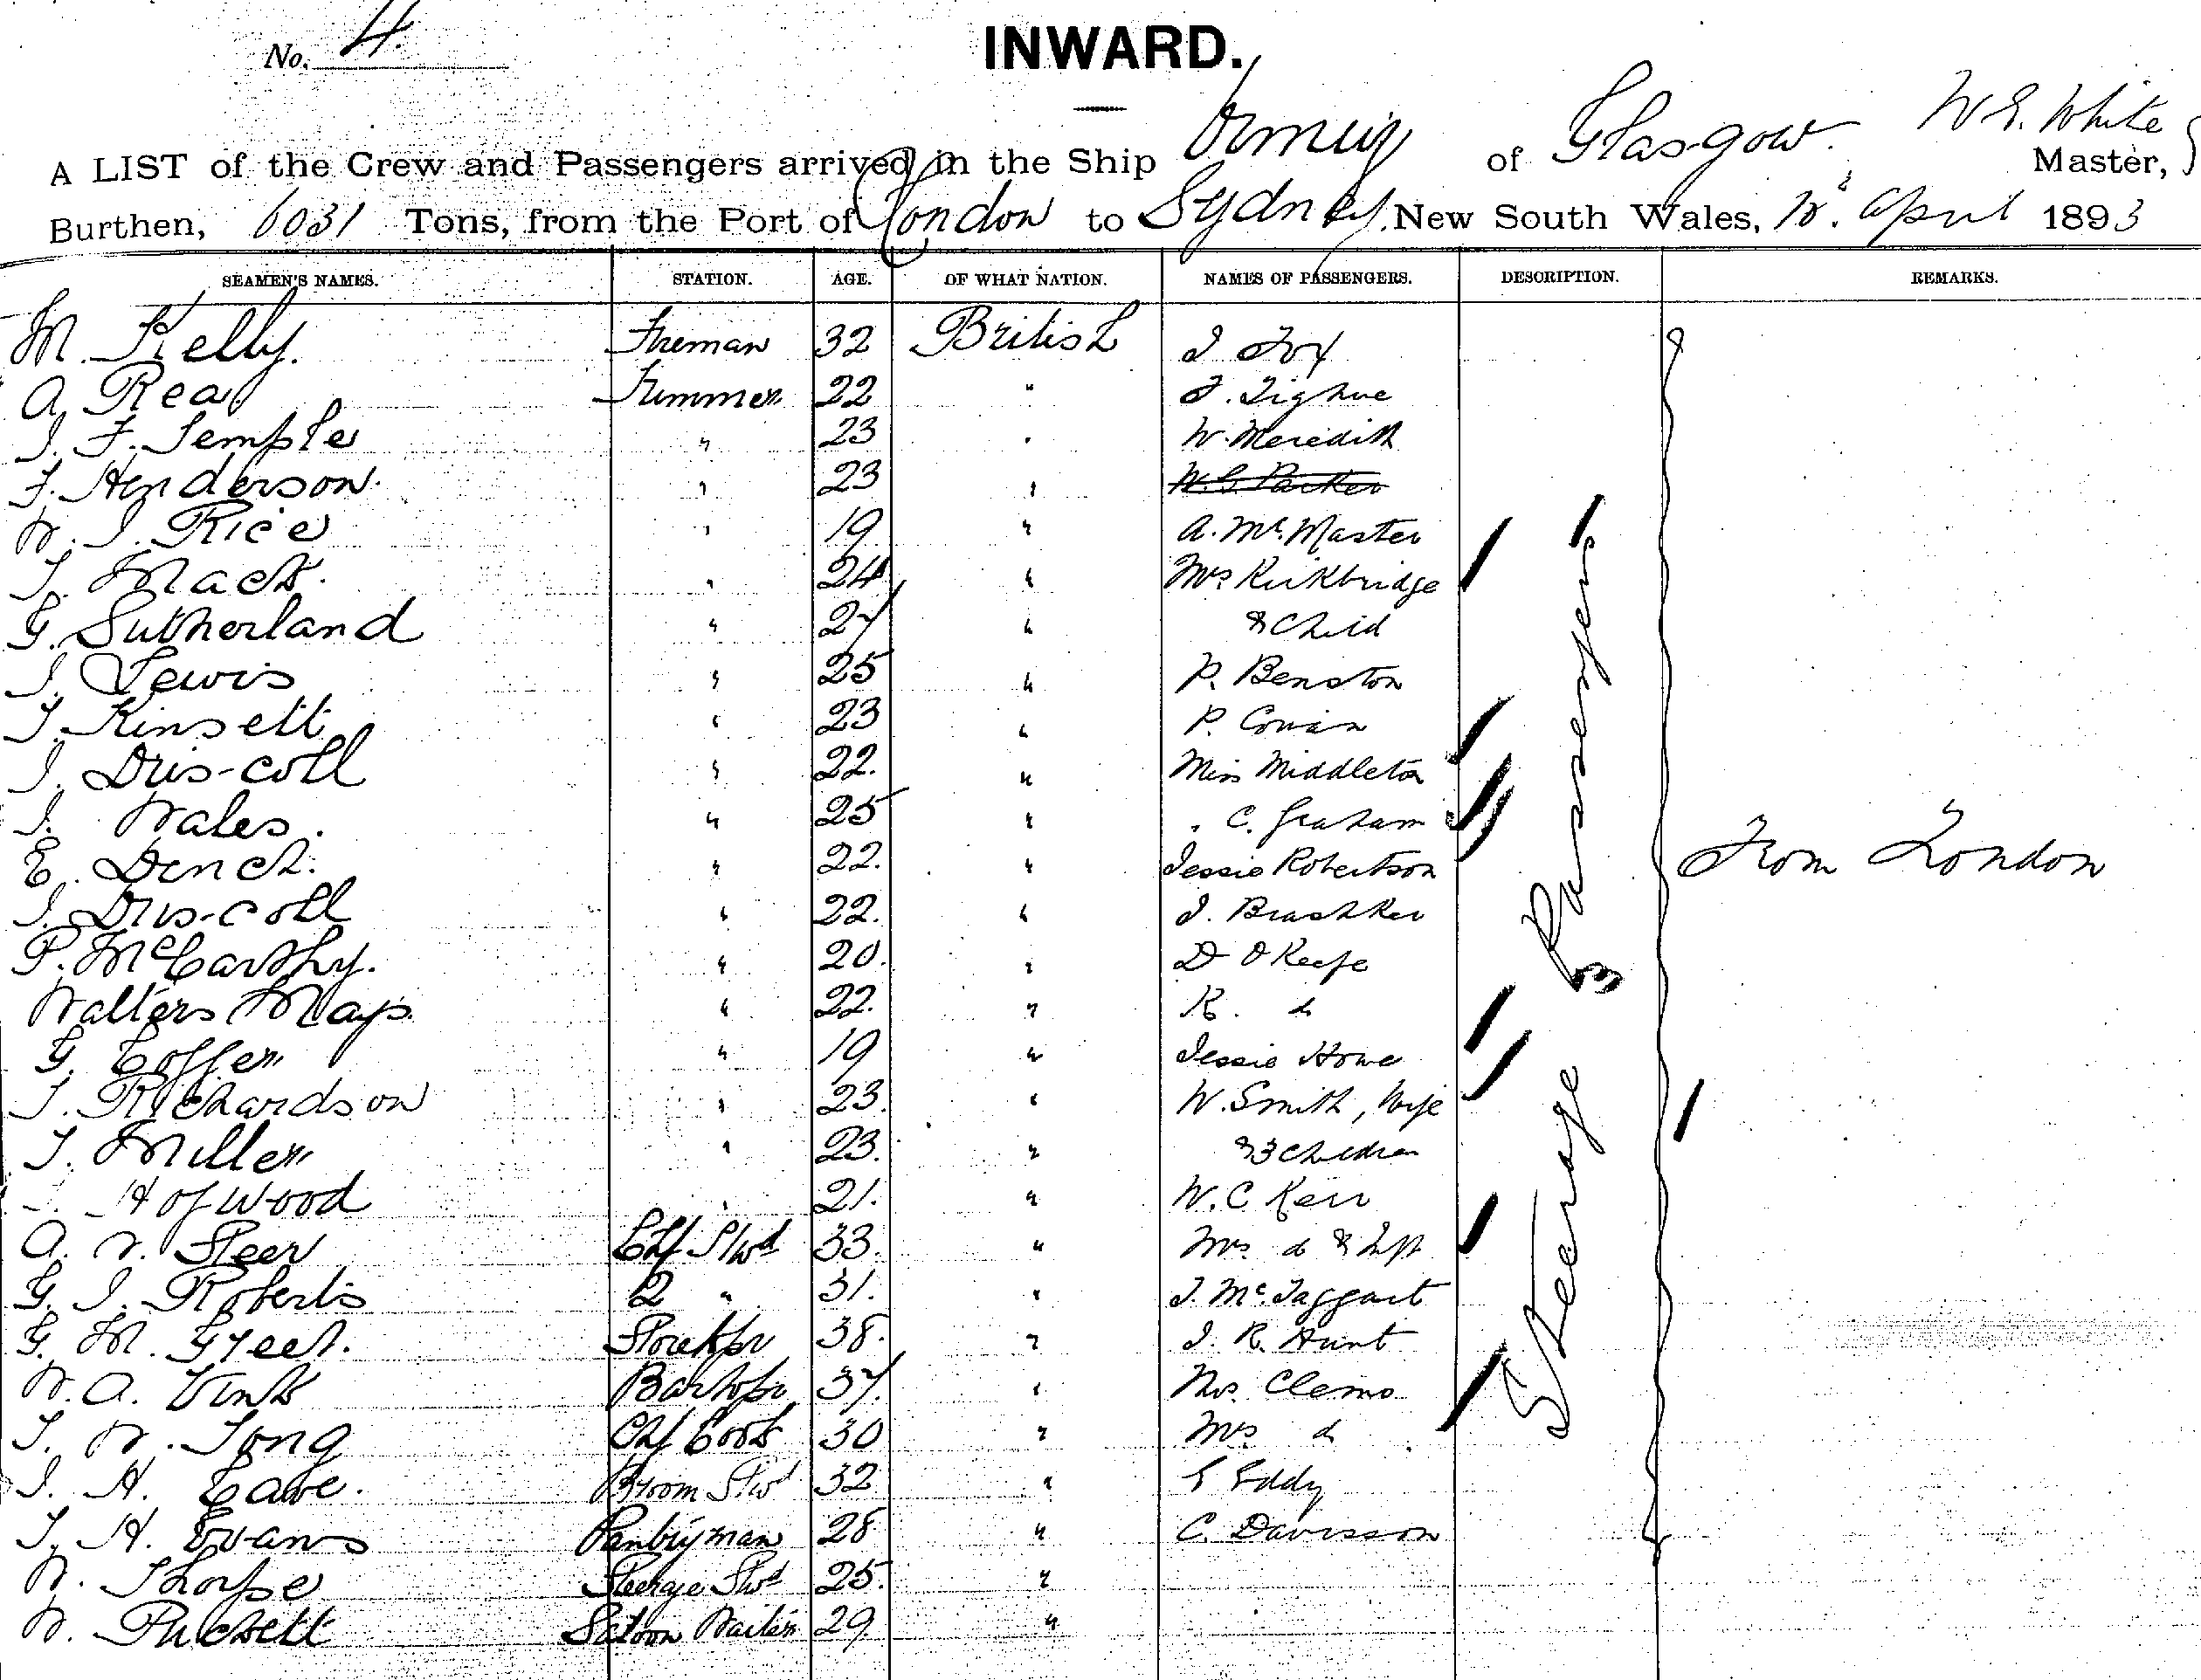 No. 4.
INWARD.
A LIST of the Crew and Passengers arrived in the Ship Ormuz of Glasgow. W E. White Master,
Burthen, 6031 Tons, from the Port of London to Sydney, New South Wales, April 1893
SEAMEN'S NAMES. STATION. AGE. OF WHAT NATION. NAMES OF PASSENGERS. DESCRIPTION. REMARKS.
M. Kelly. Fireman 32 British J Fox
A. Rea Trimmer 22 " J. Tighue
J. F. Temple " 23 " W. Meredith
F. Henderson. " 23 " W. G. Parker
W. J. Rice " 19 " A. Mc. Master
J. Mack. " 24 " Mrs Kirkbridge
G. Sutherland " 27 " & Child
J. Lewis " 25 " P. Benston
T. Kinsett " 23 " P. Cowan
J. Dris-coll " 22. " Miss Middleton
J. Wales. " 25 " " C. Graham
E. Dench. " 22. " Jessie Robertson
J. Dris-coll " 22. " J. Brashker
P. McCarthy. " 20. " D O Keefe
Walters Mays " 22. " R. do
G. Coffer " 19 " Jessie Howe
T. Richardson " 23. " W. Smith, Wife
J. Miller " 23. " & 3 Children
Hofwood " 21. " W. C Kerr
A. W. Steer Chf Stwd 33. " Mrs do & Inft
G. J. Roberts 2 " 31. " J. Mc. Taggart
G. M. Greet. Storekpr 38. " J. R. Hunt
W. A. Vink Barkpr 37. " Thos. Clemo
T. W. Tong Chf Cook 30 " Mrs do
J. H. Cave. Broom Stwd 32 " E Eddy
T. H. Evans Pantryman 28 " C. Davisson
W. Thorpe Steerage Stwd 25. "
W. Puckett Saloon Waiter 29 "
Steerage Passengers
From London